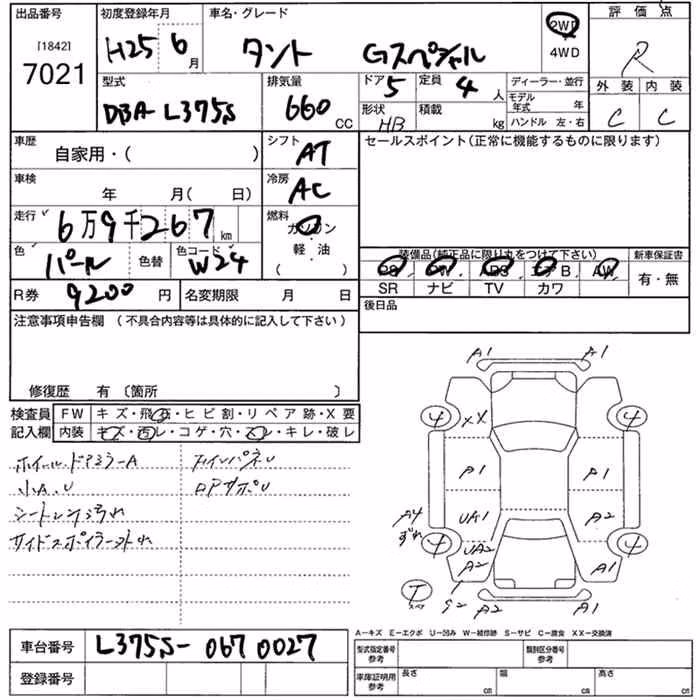 出品番号 初度登録年月 車名・グレード 評価点
[1842] 7021 H25 6月 タント Gスペシャル 2WD 4WD R
型式 排気量 ドア 定員 ディーラー・並行 外装 内装
DBA-L375S 660 CC 5 4人 モデル年式 年 C C
形状 HB 積載 kg ハンドル 左・右
車歴 シフト セールスポイント(正常に機能するものに限ります)
自家用・( ) AT
車検 冷房
年 月( 日) AC
走行 燃料
6万9千267km ガソリン
軽・油
( )
色 パール 色替 色コード W24
装備品(純正品に限り丸をつけて下さい) 新車保証書
PS PW ABS エアB AW 有・無
SR ナビ TV カワ
R券 9200円 名変期限 月 日 後日品
注意事項申告欄(不具合内容等は具体的に記入して下さい)
修復歴 有〔箇所 〕
検査員 FW キズ・飛石・ヒビ割・リペア跡・X要
記入欄 内装 キズ・凹レ・コゲ・穴・スレ・キレ・破レ
ホイール・ドアミラーA
小A.U ロアサポU
シートレンジ汚れ
サイドスポイラー外れ
A1 A1
4 XX 4
A1 A1
A4 ずれ UA1 A2
4 UA2 4
A2 A1
T スペア 92 A2 A2
A-キズ E-エクボ U-凹み W-補修跡 S-サビ C-腐食 XX-交換済
車台番号 L375S-0670027
登録番号
型式指定番号 参考 類別区分番号 参考
車庫証明用 参考 長さ cm 幅 cm 高さ cm